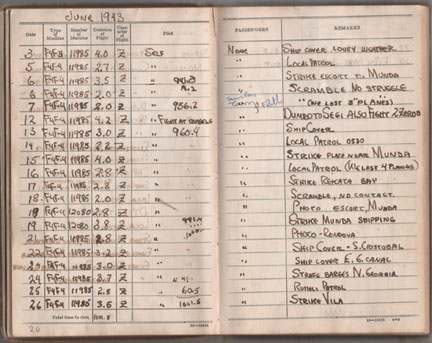 JUNE 1943
Date Type of Machine Number of Machine Duration of Flight Character of Flight Pilot PASSENGERS REMARKS
3 F4F-4 11985 4.0 Z SELF NONE SHIP COVER LOUSY WEATHER
5 F4F-4 11985 2.7 Z " " LOCAL PATROL
6 F4F-4 11985 3.5 Z " " STRIKE ESCORT TO MUNDA
F4F-4 11985 2.0 Z " SCRAMBLE NO STRUGGLE
7 F4F-4 11985 Z " 956.2 " "ONE LOST 3 PLANES"
12 F4F-4 11985 4.2 Z " FIGHT AT " DUMBO TO SEGI ALSO FIGHT ZEROS
13 F4F-4 11985 3.0 Z " 960.4 " SHIP COVER
14 F4F-4 11985 Z " " LOCAL PATROL 0530
15 F4F-4 11985 4.0 Z " " STRIKE PLANE NEAR MUNDA
16 F4F-4 11985 2.8 Z " " LOCAL PATROL (WE LOST 4 PLANES)
17 F4F-4 11985 2.8 Z " " STRIKE REKATA BAY
18 F4F-4 11985 2.0 Z " " SCRAMBLE, NO CONTACT.
19 F4F-4 12080 2.8 Z " " PHOTO ESCORT MUNDA
19 F4F-4 12080 2.8 Z " " STRIKE MUNDA SHIPPING
21 F4F-4 11985 2.8 Z " " PHOTO - RENDOVA
22 F4F-4 11985 Z " " SHIP COVER - S.
F4F-4 11985 3.0 Z " " SHIP COVER E. G. CANAL
24 F4F-4 11985 Z " " STRAFE BARGES N. GEORGIA
25 F4F-4 11985 2.5 Z " 60.5 " RUSSELL PATROL
26 F4F-4 11985 3.5 Z " " STRIKE VILA
Total time to date,
20